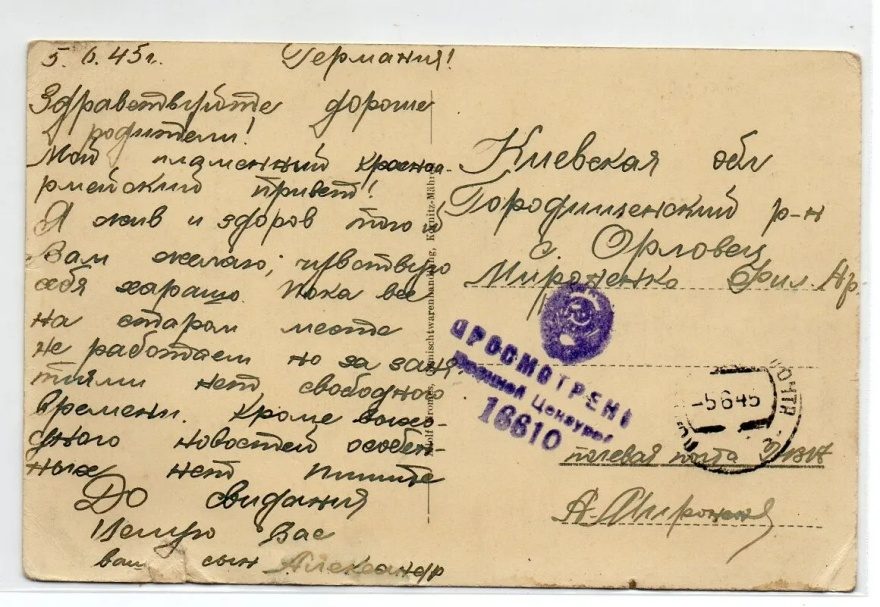 5. 6. 45г. Германия!
Здравствуйте дорогие
родители!
Мой пламенный красноа-
рмейский привет!!
Я жив и здоров того и
Вам желаю, чувствую
себя харашо. Пока все
на старом месте
не работаем но за заня
тиями нет свободного
времени. Кроме выхо-
дного новостей особен-
ных нет пишите
До свидания
Целую Вас
ваш сын Александр
Киевская обл
Городищенский р-н
с. Орловец
Мироненко
ПРОСМОТРЕНО
Военной Цензурой
16610
-5 6 45
полевая почта
А. Мироненко